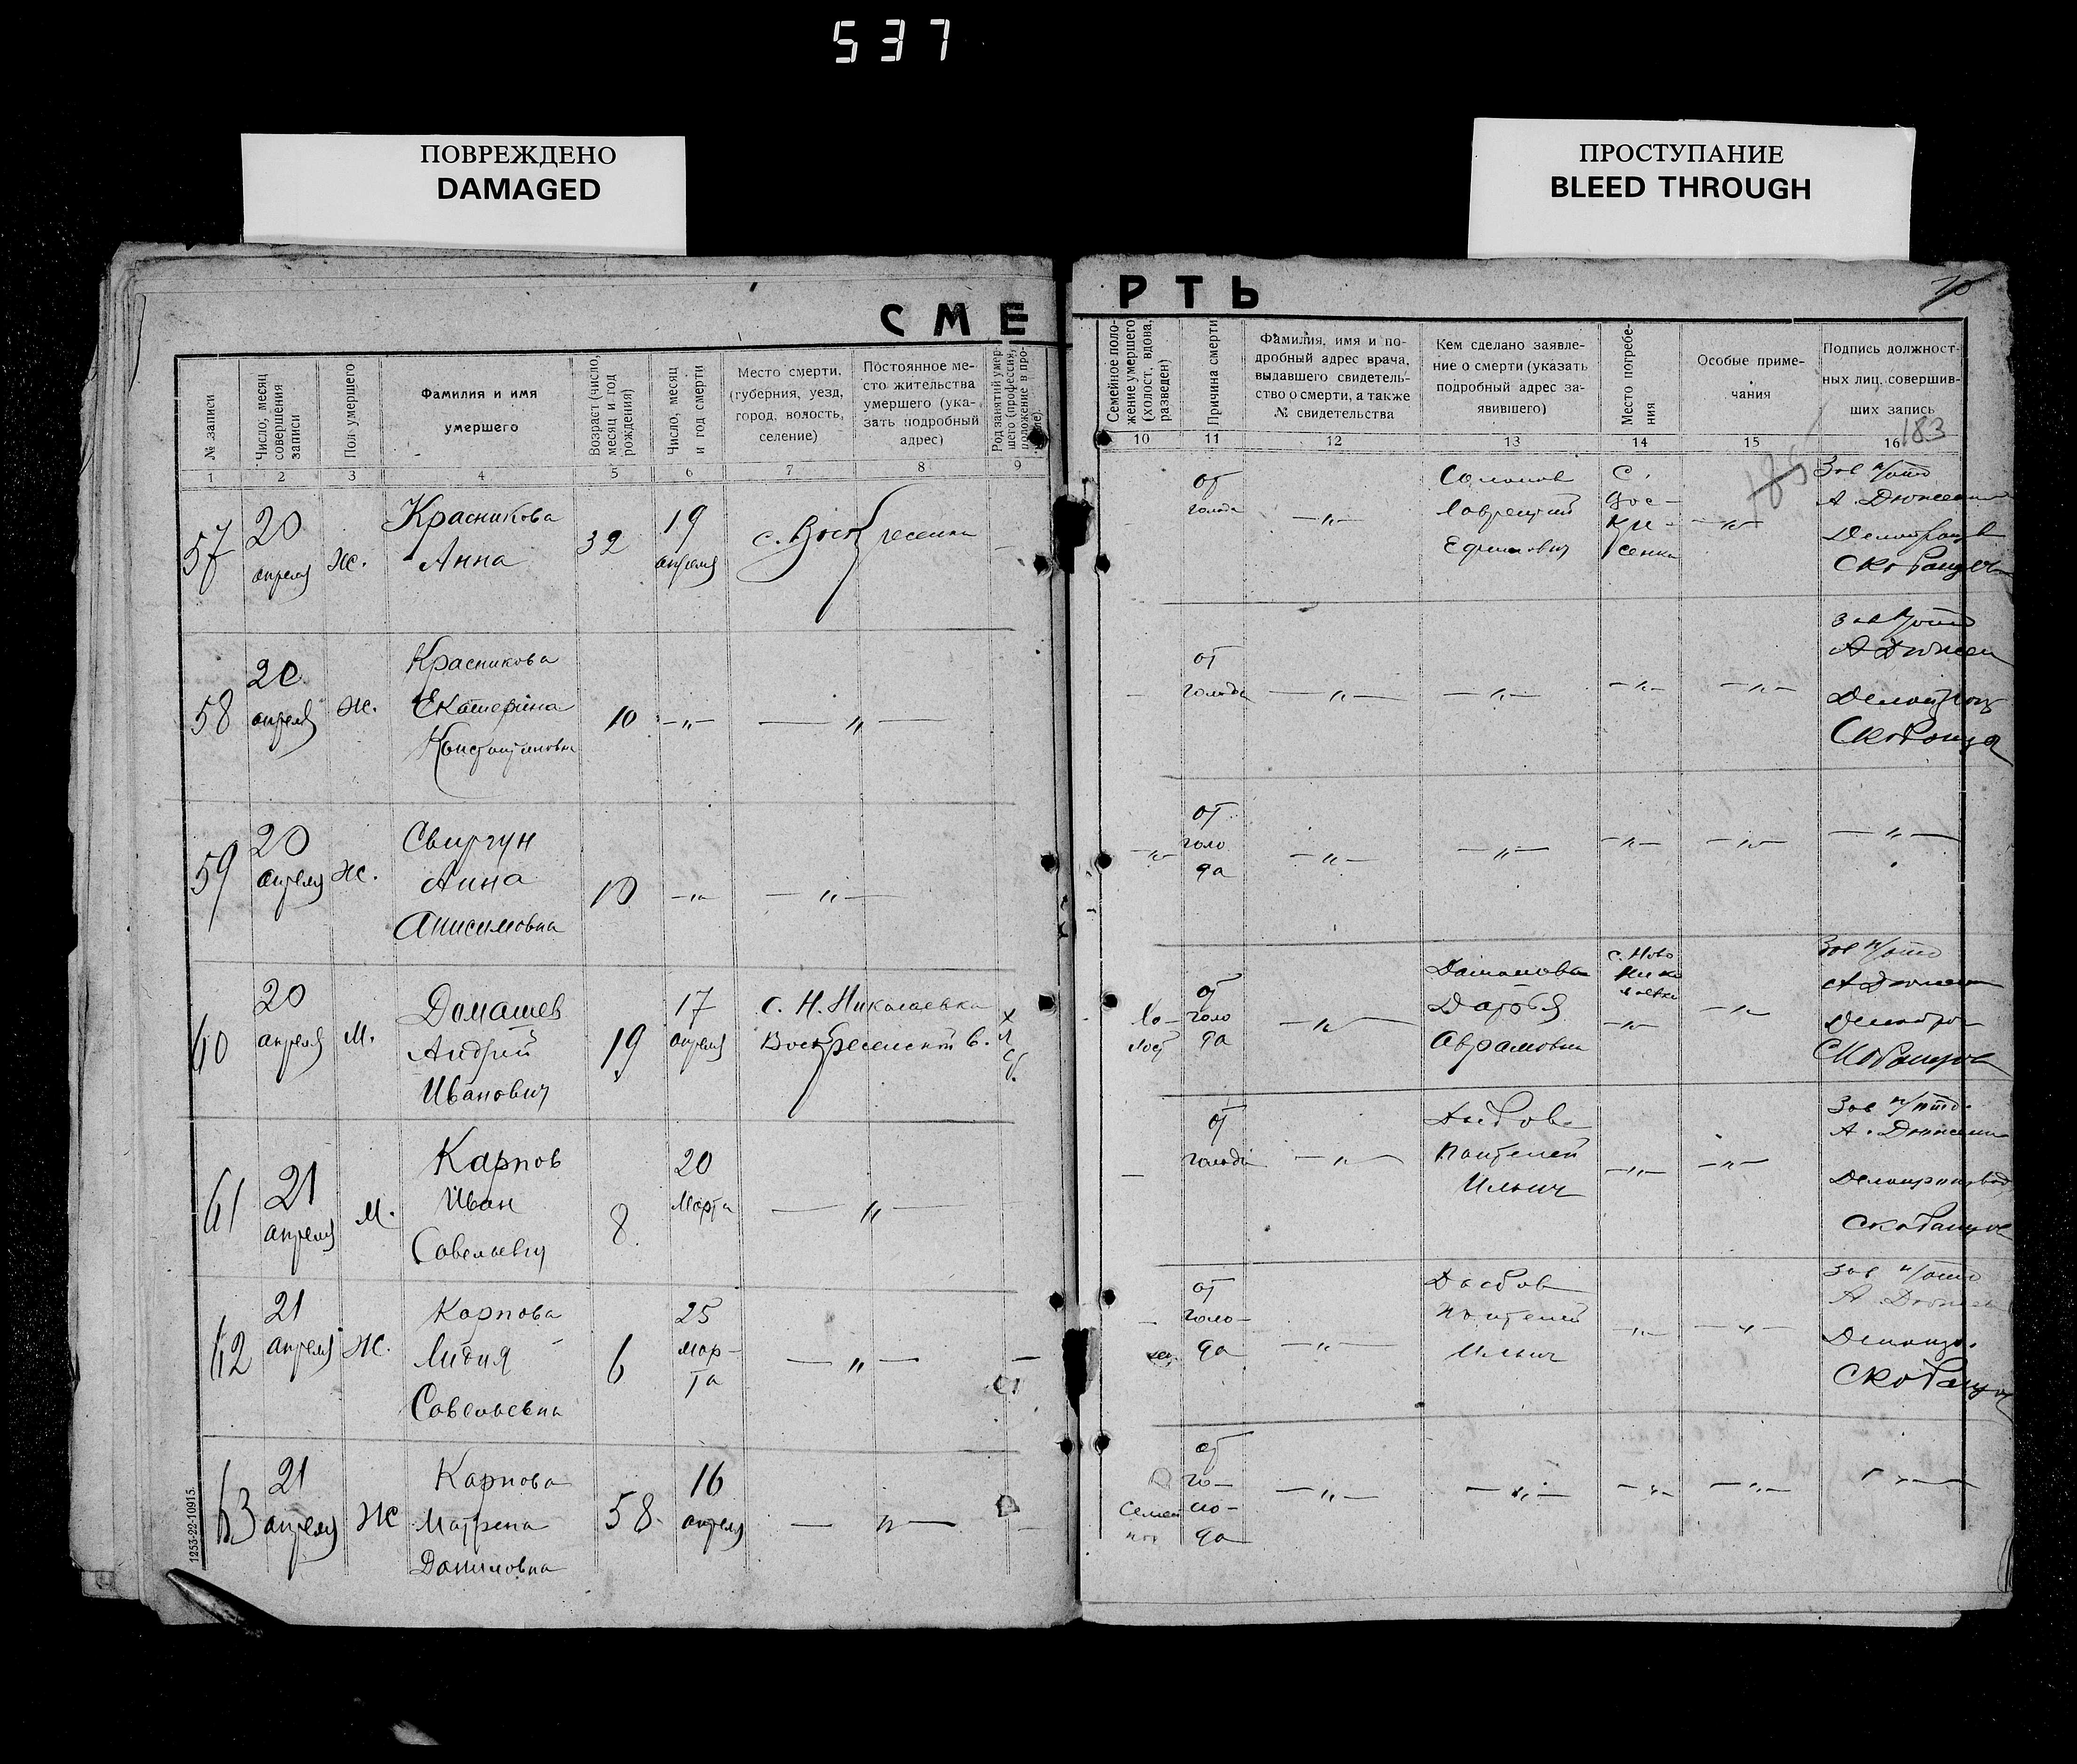 537
ПОВРЕЖДЕНО
DAMAGED
ПРОСТУПАНИЕ
BLEED THROUGH
СМЕ
РТЬ
70
№ записи
Число, месяц совершения записи
Пол умершего
Фамилия и имя
умершего
Возраст (число, месяц и год рождения)
Число, месяц и год смерти
Место смерти,
(губерния, уезд,
город, волость,
селение)
Постоянное ме-
сто жительства
умершего (ука-
зать подробный
адрес)
Род занятий умер-
шего (профессия,
положение в про-
Семейное поло-
жение умершего
(холост, вдова,
разведен)
Причина смерти
Фамилия, имя и по-
дробный адрес врача,
выдавшего свидетель-
ство о смерти, а также
№ свидетельства
Кем сделано заявле-
ние о смерти (указать
подробный адрес за-
явившего)
Место погребе-
ния
Особые приме-
чания
Подпись должност-
ных лиц, совершив-
ших запись
183
1 2 3 4 5 6 7 8 9
10 11 12 13 14 15 16
185
57
20
апреля
ж.
Красникова
Анна
32
19
апреля
с. Воскресенка
—
от
голода
—"—
Ефимович
с.
Вос-
кре-
сенка
—"—
Зав п/отд
58
20
апреля
ж.
Красникова
Екатерина
Константиновна
10
—"—
—"—
—
от
голода
—"—
—"—
—"—
—"—
Зав п/отд
59
20
апреля
ж.
Свиргун
Анна
Анисимовна
10
—"—
—"—
—"—
от
голо
да
—"—
—"—
—"—
—"—
—"—
60
20
апреля
м.
Домашев
Андрей
Иванович
19
17
апреля
с. Н. Николаевка
Воскресенской в.
хлеб.
Хо-
лост
от
голо
да
—"—
Дарья
Аврамовна
с. Ново
Нико
лаевка
—"—
—"—
Зав п/отд
61
21
апреля
м.
Карпов
Иван
Савельевич
8
20
Марта
—"—
—
от
голода
—"—
Пантелей
Ильич
—"—
—"—
Зав п/отд.
62
21
апреля
ж.
Карпова
Лидия
Савельевна
6
25
мар-
та
—"—
—
от
голо-
да
—"—
Пантелей
Ильич
—"—
—"—
Зав п/отд
63
21
апреля
ж
Карпова
Матрена
Даниловна
58
16
апреля
—"—
—
Семей
ное
от
го-
ло-
да
—"—
—"—
—"—
—"—
—"—
1253-22-10915.